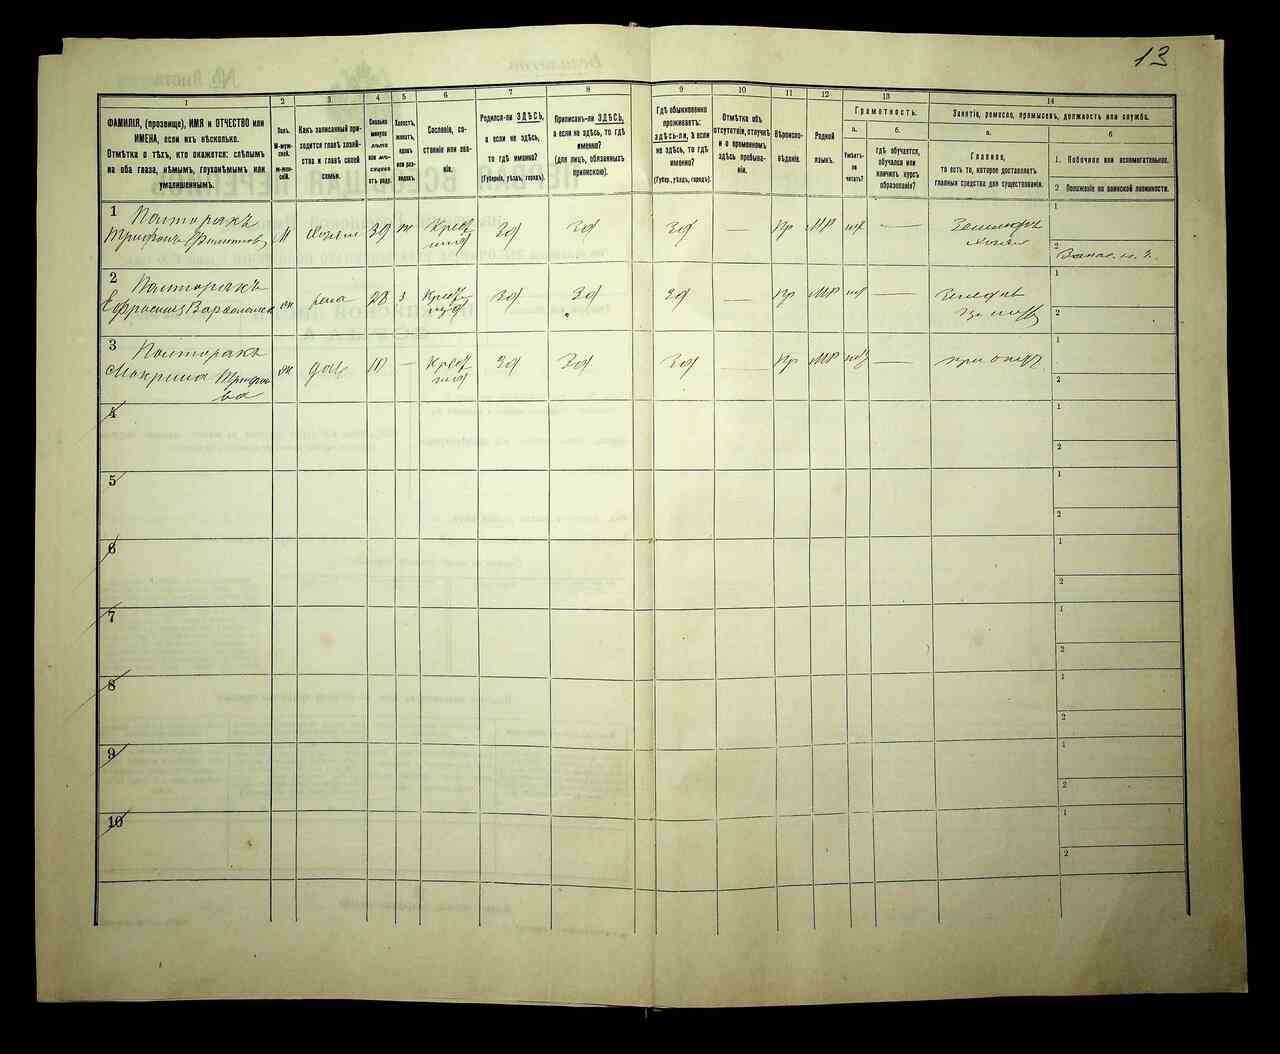 13
1
ФАМИЛІЯ, (прозвище), ИМЯ и ОТЧЕСТВО или
ИМЕНА, если ихъ нѣсколько.
Отмѣтка о тѣхъ, кто окажется: слѣпымъ
на оба глаза, нѣмымъ, глухонѣмымъ или
умалишеннымъ.
2
Полъ.
М-муж-
ской.
ж-жен-
скій.
3
Какъ записанный при-
ходится главѣ хозяй-
ства и главѣ своей
семьи.
4
Сколько
минуло
лѣтъ
или мѣ-
сяцевъ
отъ роду.
5
Холостъ,
женатъ,
вдовъ
или раз-
веденъ.
6
Сословіе, со-
стояніе или зва-
ніе.
7
Родился-ли ЗДѢСЬ,
а если не здѣсь,
то гдѣ именно?
(Губернія, уѣздъ, городъ).
8
Приписанъ-ли ЗДѢСЬ,
а если не здѣсь, то гдѣ
именно?
(для лицъ, обязанныхъ
припискою).
9
Гдѣ обыкновенно
проживаетъ:
здѣсь-ли, а если
не здѣсь, то гдѣ
именно?
(Губер., уѣздъ, городъ).
10
Отмѣтка объ
отсутствіи, отлучкѣ
и о временномъ
здѣсь пребыва-
ніи.
11
Вѣроиспо-
вѣданіе.
12
Родной
языкъ.
13
Грамотность.
а.
Умѣетъ-
ли
читать?
б.
гдѣ обучается,
обучался или
кончилъ курсъ
образованія?
14
Занятіе, ремесло, промыселъ, должность или служба.
а.
Главное,
то есть то, которое доставляетъ
главныя средства для существованія.
б
1. Побочное или вспомогательное.
2 Положеніе по воинской повинности.
1
Полторакъ
Трифонъ Филиппов
М
Хозяин
39
ж
Крест
Зд
Зд
Зд
—
Пр
МР
—
Хозяин
1
2
2
Полторакъ
Ефросинія Варфоломе
ж
жена
28
з
Крест
Зд
Зд
Зд
—
Пр
МР
—
1
2
3
Полторакъ
Макрина Трифоно
ва
ж
дочь
10
—
Крест
Зд
Зд
Зд
—
Пр
МР
—
при отцѣ
1
2
4
1
2
5
1
2
6
1
2
7
1
2
8
1
2
9
1
2
10
1
2